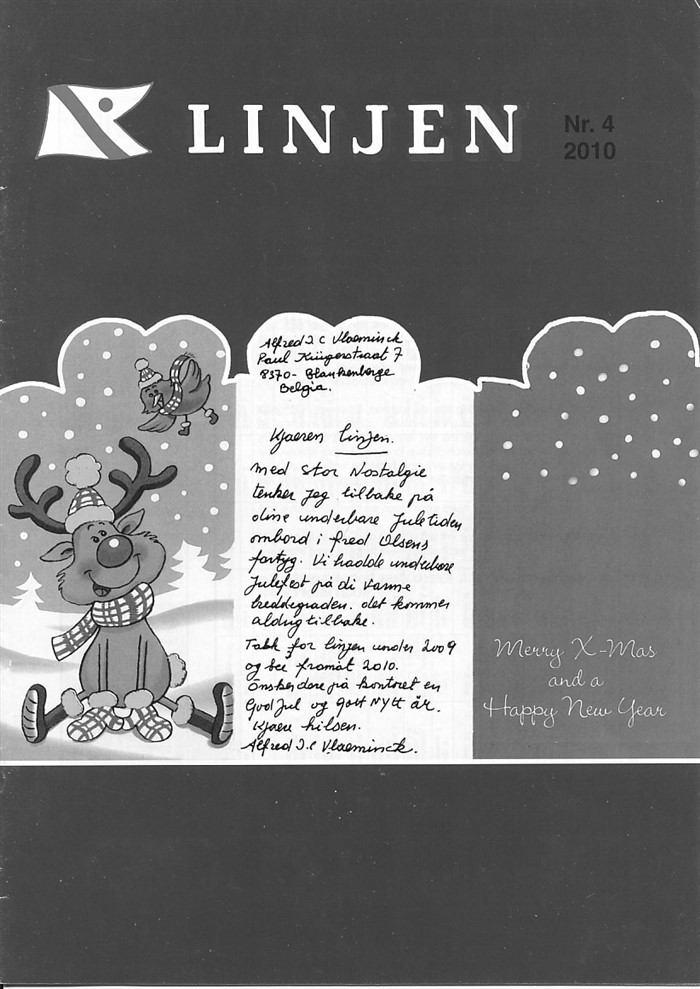 LINJEN
Nr. 4
2010
Alfred J C Vlaeminck
Paul Krügerstraat 7
8370 - Blankenberge
Belgia.
Kjaeren linjen.
med stor Nostalgie
tenker jeg tilbake på
dine underbare Juletiden
ombord i fred Olsens
fartyg. Vi hadde underbare
Julefest på di varme
breddegraden. det kommer
aldrig tilbake.
Takk for linjen under 2009
og see framåt 2010.
Ønsker dere på kontoret en
God Jul og gott NYtt år.
Kjaere hilsen.
Alfred J.C Vlaeminck.
Merry X-Mas
and a
Happy New Year